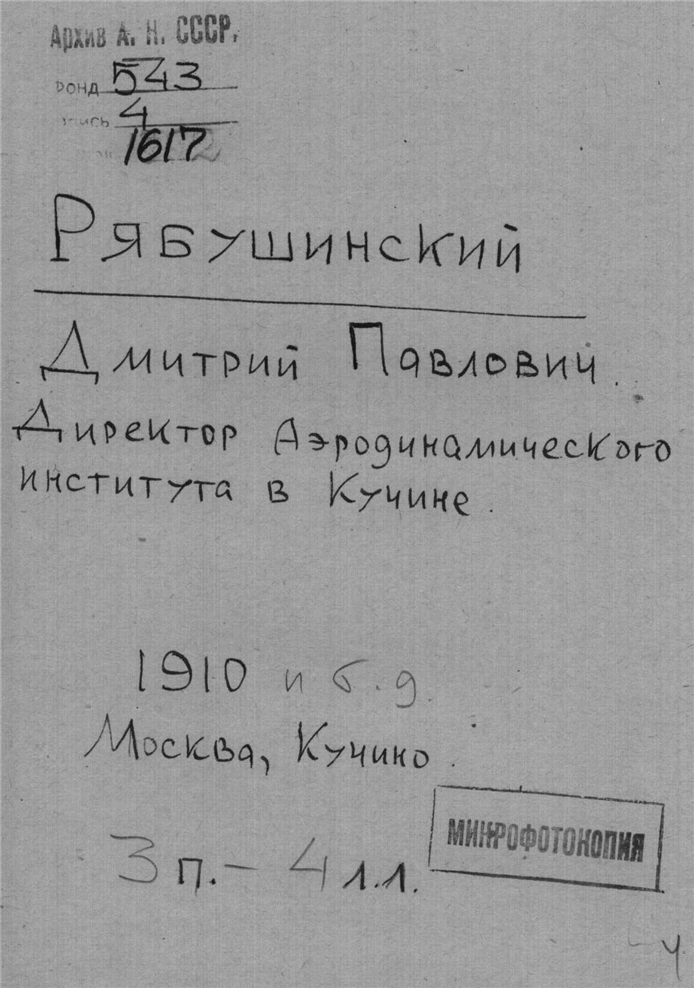 Архив А. Н. СССР.
Фонд 543
опись 4
1617
Рябушинский
Дмитрий Павлович.
Директор Аэродинамического
института в Кучине.
1910 и б.д.
Москва, Кучино.
3 п. – 4 л.л.
МИКРОФОТОКОПИЯ